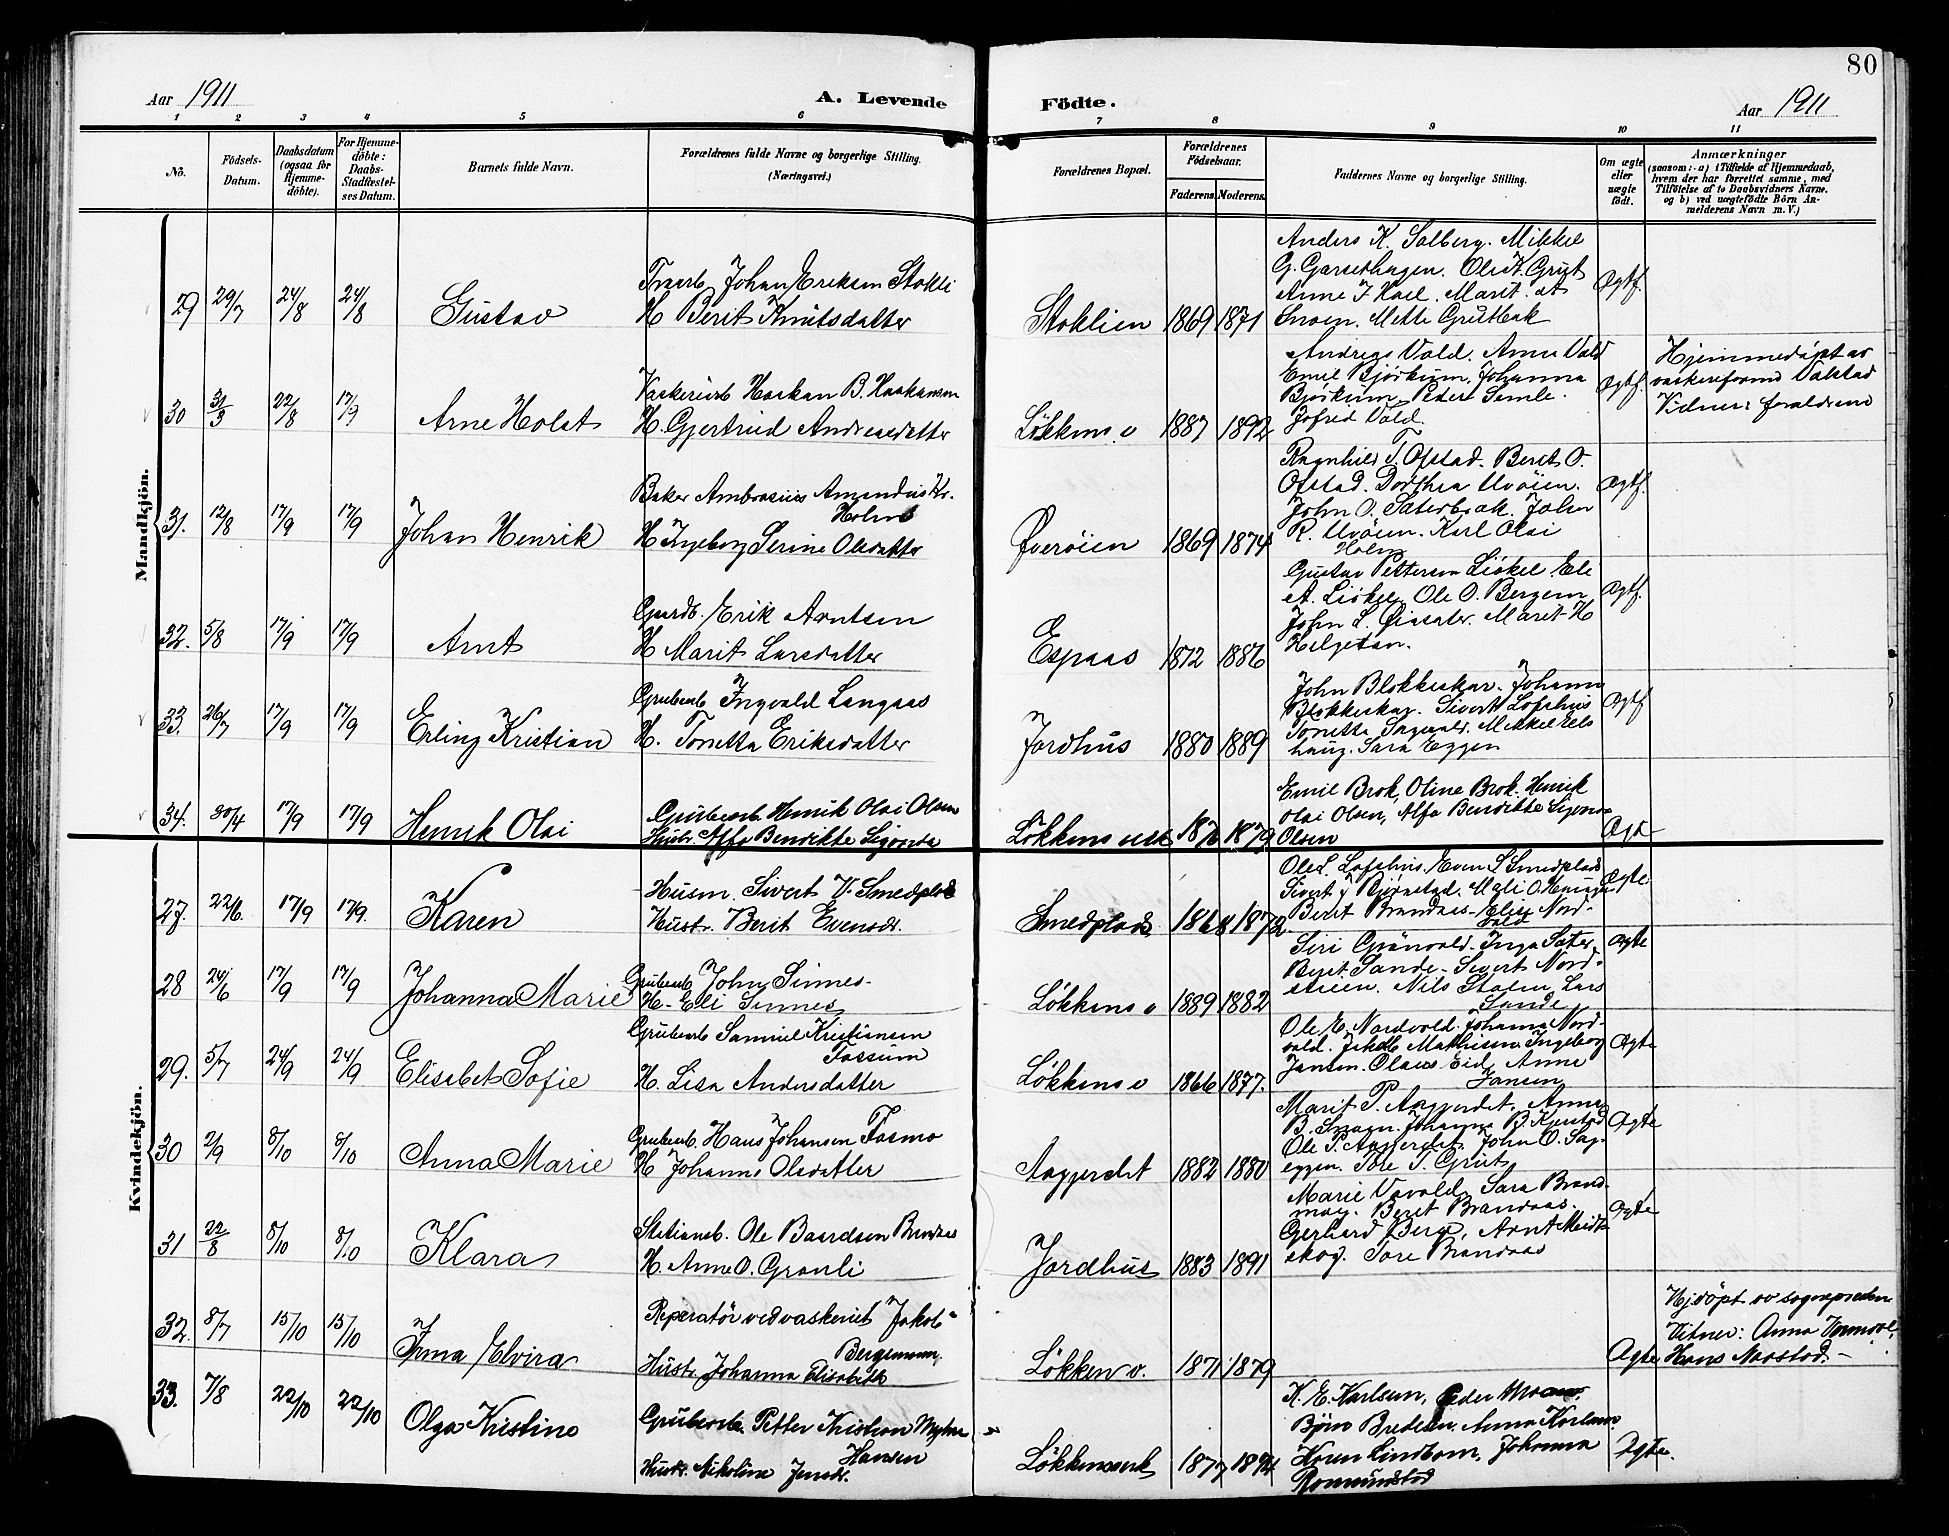 80
Aar 1911
A. Levende Födte.
Aar 1911
1 2 3 4 5 6 7 8 9 10 11
No.
Födsels-
Datum.
Daabsdatum
(ogsaa for
Hjemme-
döbte).
For Hjemme-
döbte:
Daabs-
Stadfæstel-
ses Datum.
Barnets fulde Navn.
Forældrenes fulde Navne og borgerlige Stilling.
(Næringsvei.)
Forældrenes Bopæl.
Forældrenes
Födselsaar.
Faderens.
Moderens.
Faddernes Navne og borgerlige Stilling.
Om ægte
eller
uægte
födt.
Anmærkninger
(saasom: a) i Tilfælde af Hjemmedaab,
hvem der har forrettet samme, med
Tilföielse af to Daabsvidners Navne,
og b) ved uægtefödte Börn An-
melderens Navn m. V.)
Mandkjön.
29 29/7 24/8 24/8 Gustav
Johan Eriksen Stokli
H Berit Knutsdatter
Stoklien 1869 1871
Anders K. Solberg. Mikkel
G. Garsethagen. Ole K. Grut
Anne J Hoel. Marit
Snoen. Mette Grutbak
Ægtf.
30 31/3 22/8 17/9 Arne Holst
Haakan B. Haakansen
H. Gjertrud Andreasdatter
Løkkens v 1887 1892
Andreas Vold. Anne Vold
Emil Bjørkum. Johanna
Bjørkum. Peder Semle.
Jofred Vold.
Ægtf.
Hjemmedøpt av
Valstad
Vidner: forældrene
31. 12/8 17/9 17/9 Johan Henrik
Baker Ambrosius Amandus Kr.
Holm
H Ingeborg Serine Olsdatter
Øverøien 1869 1874
Ragnhild T. Ofstad. Beret O.
Ofstad. Dorthea Uvøien.
John O. Sæterbak. John
R. Uvøien. Karl Olai
Holm
Ægtf.
32. 5/8 17/9 17/9 Arnt
Gaardb. Erik Arntsen
H Marit Larsdatter
Espaas 1872 1886
Gustav Pettersen Liøkel. Eli
A. Liøkel. Ole O. Bergem
John L. Øiasæter. Marit H
Helgetun.
Ægtf.
33. 26/7 17/9 17/9 Erling Kristian
Grubearb Ingvald Langaas
H. Tonetta Eriksdatter
Jordhus 1880 1889
John Blokkeskar. Johanna
Blokkeskar. Sivert Lofshus
Tonetta Mikkel Els
haug. Sara Eggen
Ægtf
34. 30/4 17/9 17/9 Henrik Olai
Grubearb Henrik Olai Olsen
Hustr. Alfa Bendikte Sigvarda
Løkkens verk 1876 1879
Emil Brok, Oline Brok. Henrik
Olai Olsen, Alfa Bendikte Sigvarda
Olsen
Ægte
Kvindekjön.
27. 22/6. 17/9 17/9. Karen
Husm. Sivert V. Smedplads
Hustr. Berit Evensdr.
Smedplads 1868 1872.
Ole L. Lofshus. Even S Smedplads
Sivert J Bjørnstad. Mali O.
Beret Brandaas. Elise Nord-
vold
Ægte.
28 24/6 17/9 17/9 Johanna Marie
Grubearb John Sinnes.
H. Eli Sinnes
Løkkens v 1889 1882
Siri Grønvold. Inga Sæter.
Beret Sande. Sivert Nord-
steien. Nils Stolen, Lars
Sande
Ægte
29. 5/7 24/9 24/9 Elisabet Sofie
Grubearb Samuel Kristiansen
Fossum
H. Lisa Andersdatter
Løkkens v 1866 1877.
Ole E. Nordvold. Johanna Nord-
vold. Jakob Mathisen. Ingeborg
Jansen. Olaus Eid. Anne
Jansen
Ægte
30 2/9 8/10 8/10 Anna Marie
Grubearb. Hans Johansen Fosmo
H Johanne Olsdatter
Aagjerdet 1882 1880
Marit P. Aagjerdet. Anne
B. Smoen. Johanna B. Kjerstad
Ole P. Aagjerdet. John O. Sag-
eggen. Tore T. Grut
Ægte
31 22/8 8/10 8/10 Klara
Stationsb. Ole Baardsen Brandaas
H. Anne O. Granli
Jordhus 1883 1891
Marie Vavold. Sara Brand-
moy. Beret Brandaas.
Gerhard Berg. Arnt
skog. Tore Brandaas
Ægte
32. 8/7 15/10 15/10 Irma Elvira
Reparatør ved vaskeriet Jakob
Bergsmann,
Hustr. Johanna Elisabeth
Løkken v. 1871 1879
Ægte
Hjdøpt av sognepresten
Vitner: Anna
Hans Naastad. –
33. 7/8 22/10 22/10 Olga Kristine
Grubearb. Petter Kristian
Hansen
Hustr. Nikoline Jensdr.
Løkkensverk 1877 1874
K. E. Karlsen, Peder
Bjørn Bredesen. Anna Karlsen
Karen Lindbom, Johanna
Romundstad
Ægte.